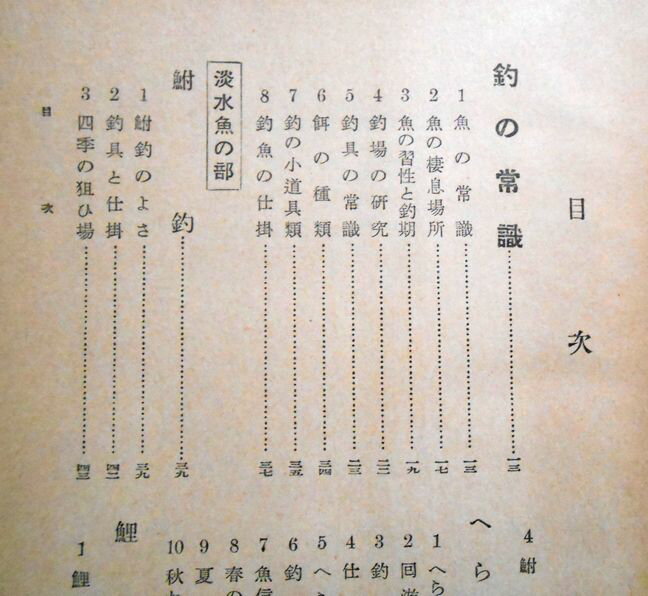 目次
釣の常識……一三
1 魚の常識……一三
2 魚の棲息場所……一七
3 魚の習性と釣期……一九
4 釣場の研究……二二
5 釣具の常識……二三
6 餌の種類……三四
7 釣の小道具類……三五
8 釣魚の仕掛……三七
淡水魚の部
鮒釣……三九
1 鮒釣のよさ……三九
2 釣具と仕掛……四二
3 四季の狙ひ場……四三
4 鮒
へら
1 へら
2 回游
3 釣
4 仕
5 へ
6 釣
7 魚信
8 春の
9 夏
10 秋
鯉
1 鯉
目次